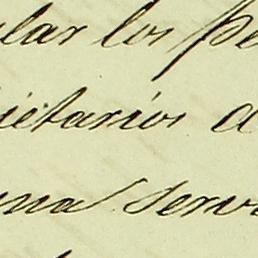 ular los pe
ietarios d
una serv